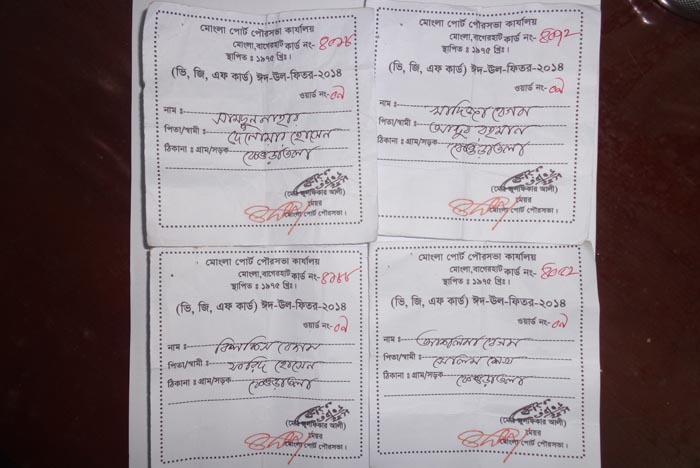 মোংলা পোর্ট পৌরসভা কার্যালয়
মোংলা,বাগেরহাট কার্ড নং-
স্থাপিত ঃ ১৯৭৫ খ্রিঃ।
(ভি, জি, এফ কার্ড) ঈদ-উল-ফিতর-২০১৪
ওয়ার্ড নং- ০৯
নাম ঃ সামছুন নাহার
পিতা/স্বামী ঃ দেলোয়ার হোসেন
ঠিকানা ঃ গ্রাম/সড়ক
(মোঃ জুলফিকার আলী)
মেয়র
মোংলা পোর্ট পৌরসভা।
মোংলা পোর্ট পৌরসভা কার্যালয়
মোংলা,বাগেরহাট কার্ড নং-
স্থাপিত ঃ ১৯৭৫ খ্রিঃ।
(ভি, জি, এফ কার্ড) ঈদ-উল-ফিতর-২০১৪
ওয়ার্ড নং- ০৯
নাম ঃ বেগম
পিতা/স্বামী ঃ আব্দুর রহমান
ঠিকানা ঃ গ্রাম/সড়ক
(মোঃ জুলফিকার আলী)
মেয়র
মোংলা পোর্ট পৌরসভা।
মোংলা পোর্ট পৌরসভা কার্যালয়
মোংলা,বাগেরহাট কার্ড নং-
স্থাপিত ঃ ১৯৭৫ খ্রিঃ।
(ভি, জি, এফ কার্ড) ঈদ-উল-ফিতর-২০১৪
ওয়ার্ড নং- ০৯
নাম ঃ বিলকিস বেগম
পিতা/স্বামী ঃ ফরিদ হোসেন
ঠিকানা ঃ গ্রাম/সড়ক
(মোঃ জুলফিকার আলী)
মেয়র
মোংলা পোর্ট পৌরসভা।
মোংলা পোর্ট পৌরসভা কার্যালয়
মোংলা,বাগেরহাট কার্ড নং-
স্থাপিত ঃ ১৯৭৫ খ্রিঃ।
(ভি, জি, এফ কার্ড) ঈদ-উল-ফিতর-২০১৪
ওয়ার্ড নং- ০৯
নাম ঃ তাসলিমা বেগম
পিতা/স্বামী ঃ সেলিম শেখ
ঠিকানা ঃ গ্রাম/সড়ক
(মোঃ জুলফিকার আলী)
মেয়র
মোংলা পোর্ট পৌরসভা।